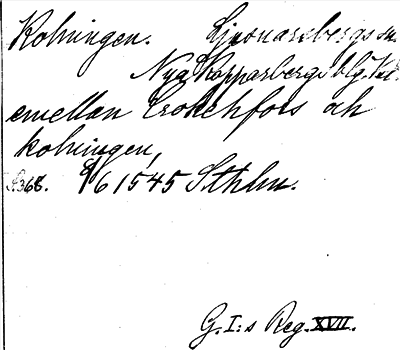 Kolningen. Ljusnarsbergs sn.
Nya Kopparbergs blg. Vstm.
emellan Crokehfors och
kolningen,
S.368. 9/6 1545 Sthlm.
G. I:s Reg. XVII.